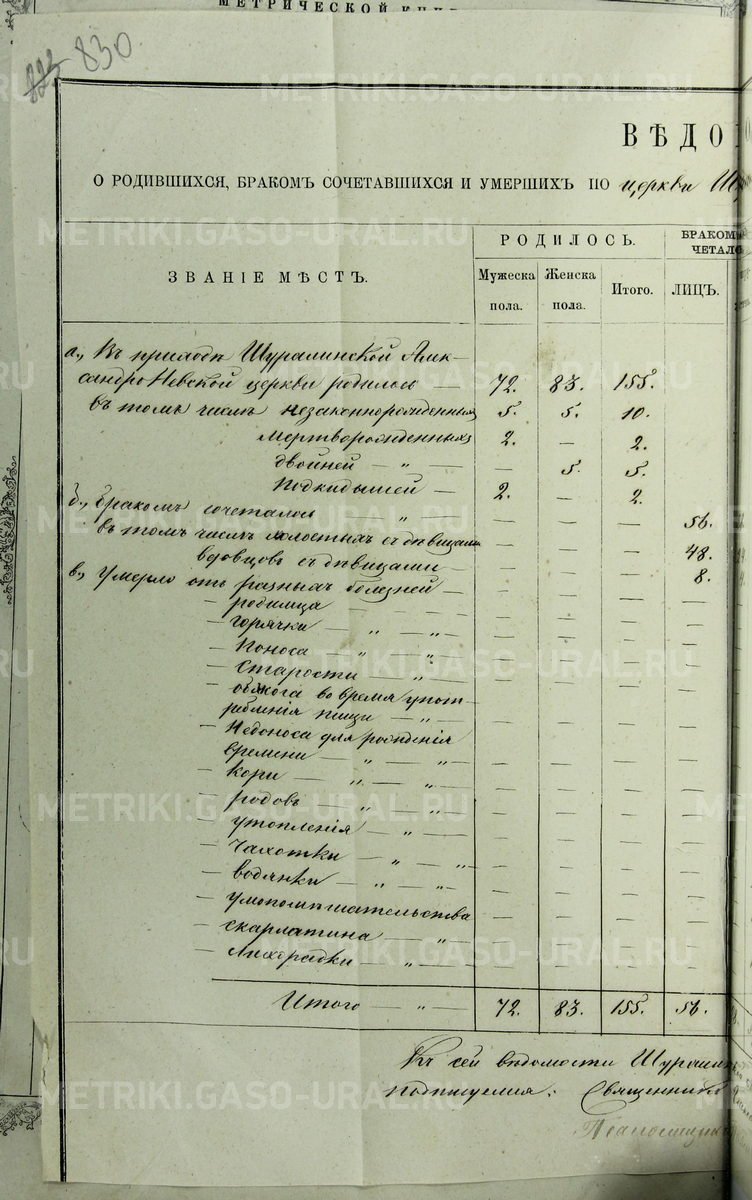 МЕТРИЧЕСКОЙ
823 830
ВѢДО
О РОДИВШИХСЯ, БРАКОМЪ СОЧЕТАВШИХСЯ И УМЕРШИХЪ ПО церкви Шу
ЗВАНІЕ МѢСТЪ.
РОДИЛОСЬ.
БРАКОМ
ЧЕТАЛО
Мужеска пола.
Женска пола.
Итого.
ЛИЦЪ.
а., Въ приходѣ Шуралинской Алек-
сандро Невской церкви родилось — 72. 83. 155.
въ томъ числѣ незаконнорожденныхъ 5. 5. 10.
мертворожденныхъ 2. — 2.
двойней — „ — — 5. 5.
Подкидышей — 2. — 2.
б., бракомъ сочеталось „ — — — — 56.
въ томъ числѣ холостыхъ съ дѣвицами — — — 48.
вдовцовъ съ дѣвицами — — — — 8.
в., Умерло отъ разныхъ болѣзней — — — — —
— родимца — — — — —
— горячки — „ — „ — — — — —
— Поноса „ „ — — — —
— Старости „ — — — — —
— обжога во время упот-
ребленія пищи — „ — — — — —
— Недоноса для рожденія
времени — „ — „ — — — — —
— Кори — „ — „ — — — — —
— родовъ „ „ — — — — —
— утопленія — „ — — — — —
— Чахотки — „ — „ — — — —
— водянки — „ — „ — — — — —
— умопомѣшательства — — — —
— скарлатина — „ — — — — —
— Лихорадки „ — — — — —
Итого — „ — 72. 83. 155. 56.
Къ сей вѣдомости Шуралин
подпишемся: Священникъ
METRIKI.GASO-URAL.RU